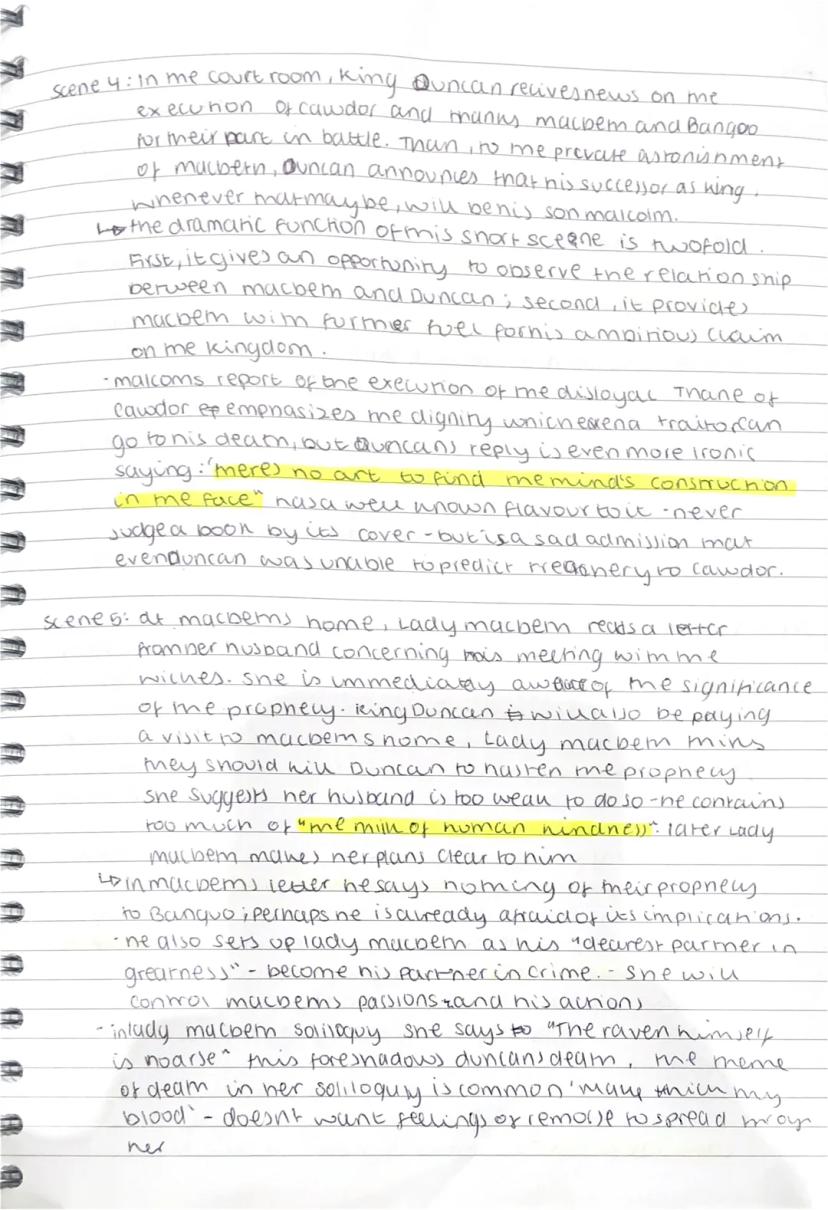 scene 4: In the court room, King Duncan recives news on the
execution of cawdor and thanks macbeth and Banqoo
for their part in battle. Than, to the prevate astonishment
of macbeth, Duncan announces that his successor as king,
whenever that may be, will be his son malcolm.
↳ the dramatic function of this short scene is twofold.
First, it gives an opportunity to observe the relationship
between macbeth and Duncan; second, it provides
macbeth with further fuel for his ambitious claim
on the kingdom.
- malcoms report of the execution of the disloyal Thane of
Cawdor emphasizes the dignity which even a traitor can
go to his death, but Duncans reply is even more ironic
saying: "theres no art to find the mind's construction
in the face" has a well known flavour to it - never
judge a book by its cover - but is a sad admission that
even Duncan was unable to predict treachery to cawdor.
scene 5: at macbeths home, Lady macbeth reads a letter
from her husband concerning his meeting with the
witches. she is immediatly aware of the significance
of the prophecy. King Duncan will also be paying
a visit to macbeths home, Lady macbeth thins
they should kill Duncan to hasten the prophecy
she suggests her husband is too weak to do so - he contains
too much of "the milk of human kindness". later Lady
macbeth makes her plans clear to him
↳ In macbeths letter he says nothing of their prophecy
to Banquo; perhaps he is already afraid of its implications.
- he also sets up lady macbeth as his "dearest partner in
greatness" - become his partner in crime. - she will
control macbeths passions and his actions
- in lady macbeth soliloquy she says "The raven himself
is hoarse" this foreshadows duncans death, the theme
of death in her soliloquy is common 'make thick my
blood' - doesnt want feelings of remorse to spread
her